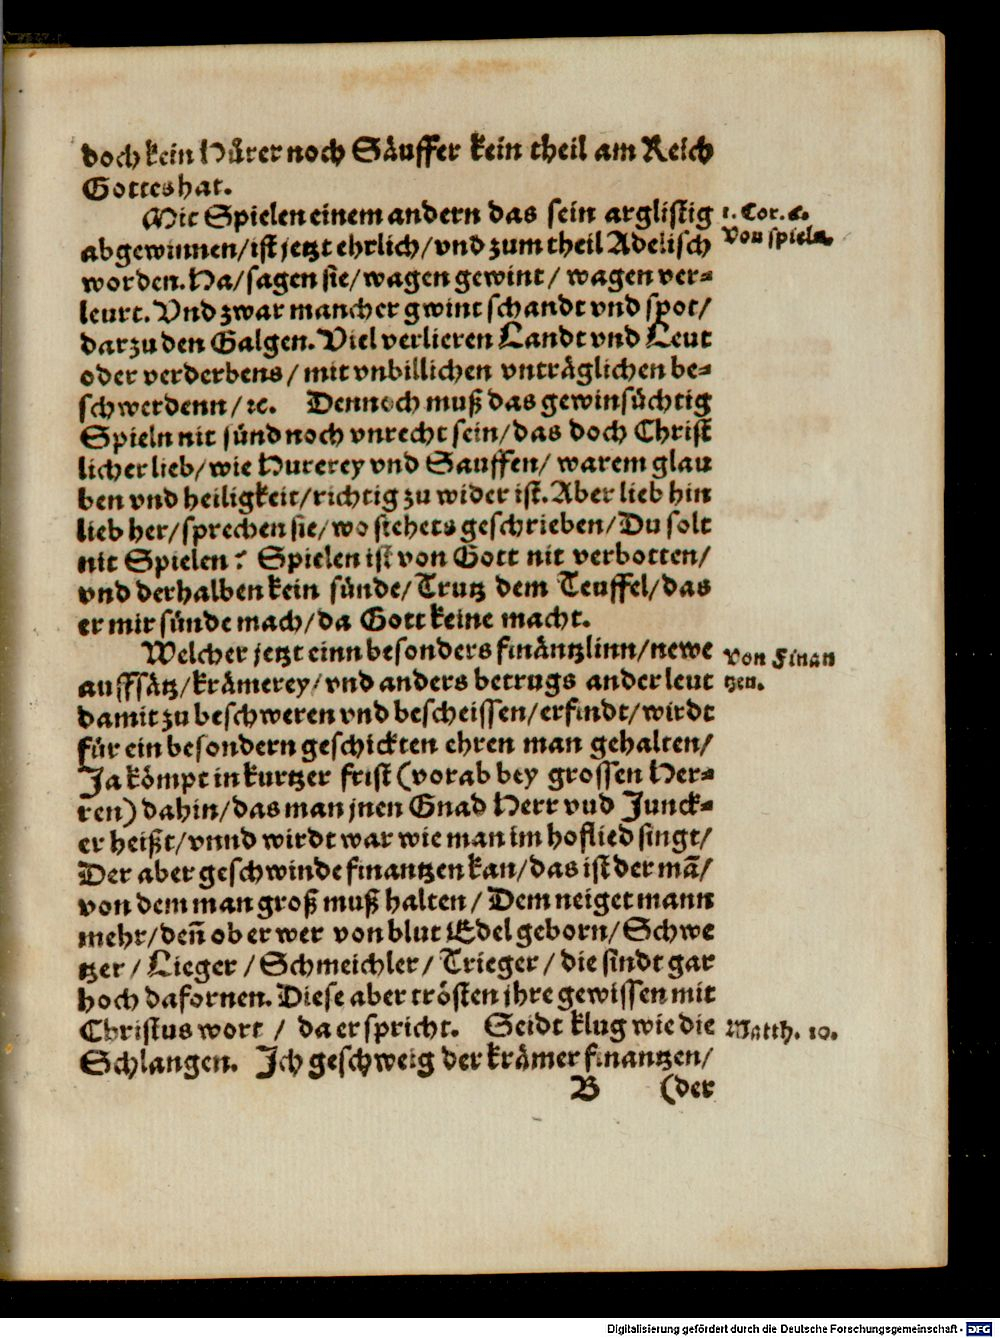 doch kein Hůrer noch Säuffer kein theil am Reich
Gottes hat.
Mit Spielen einem andern das sein arglistig
1. Cor. 6.
abgewinnen/ist jetzt ehrlich/vnd zum theil Adelisch
Von spieln.
worden. Ha/sagen sie/wagen gewint/ wagen ver-
leurt. Vnd zwar mancher gwint schandt vnd spot/
darzu den Galgen. Viel verlieren Landt vnd Leut
oder verderbens/ mit vnbillichen vnträglichen be-
schwerdenn/ ꝛc. Dennoch muß das gewinsüchtig
Spieln nit sünd noch vnrecht sein/das doch Christ
licher lieb/wie Hurerey vnd Sauffen/ warem glau
ben vnd heiligkeit/richtig zu wider ist. Aber lieb hin
lieb her/sprechen sie/wo stehets geschrieben/Du solt
nit Spielen? Spielen ist von Gott nit verbotten/
vnd derhalben kein sünde/Trutz dem Teuffel/das
er mir sünde mach/da Gott keine macht.
Welcher jetzt einn besonders finäntzlinn/newe
Von Finan
auffsätz/krämerey/vnd anders betrugs ander leut
tzen.
damit zu beschweren vnd bescheissen/erfindt/wirdt
für ein besondern geschickten ehren man gehalten/
Ja kömpt in kurtzer frist (vorab bey grossen Her-
ren) dahin/das man jnen Gnad Herr vud Junck-
er heißt/vnnd wirdt war wie man im hoflied singt/
Der aber geschwinde finantzen kan/das ist der mã/
von dem man groß muß halten/ Dem neiget mann
mehr/deñ ob er wer von blut Edel geborn/Schwe
tzer/ Lieger/ Schmeichler/ Trieger/ die sindt gar
hoch dafornen. Diese aber trösten jhre gewissen mit
Christus wort / da er spricht. Seidt klug wie die
Matth. 10.
Schlangen. Ich geschweig der krämer finantzen/
B (der
Digitalisierung gefördert durch die Deutsche Forschungsgemeinschaft - DFG